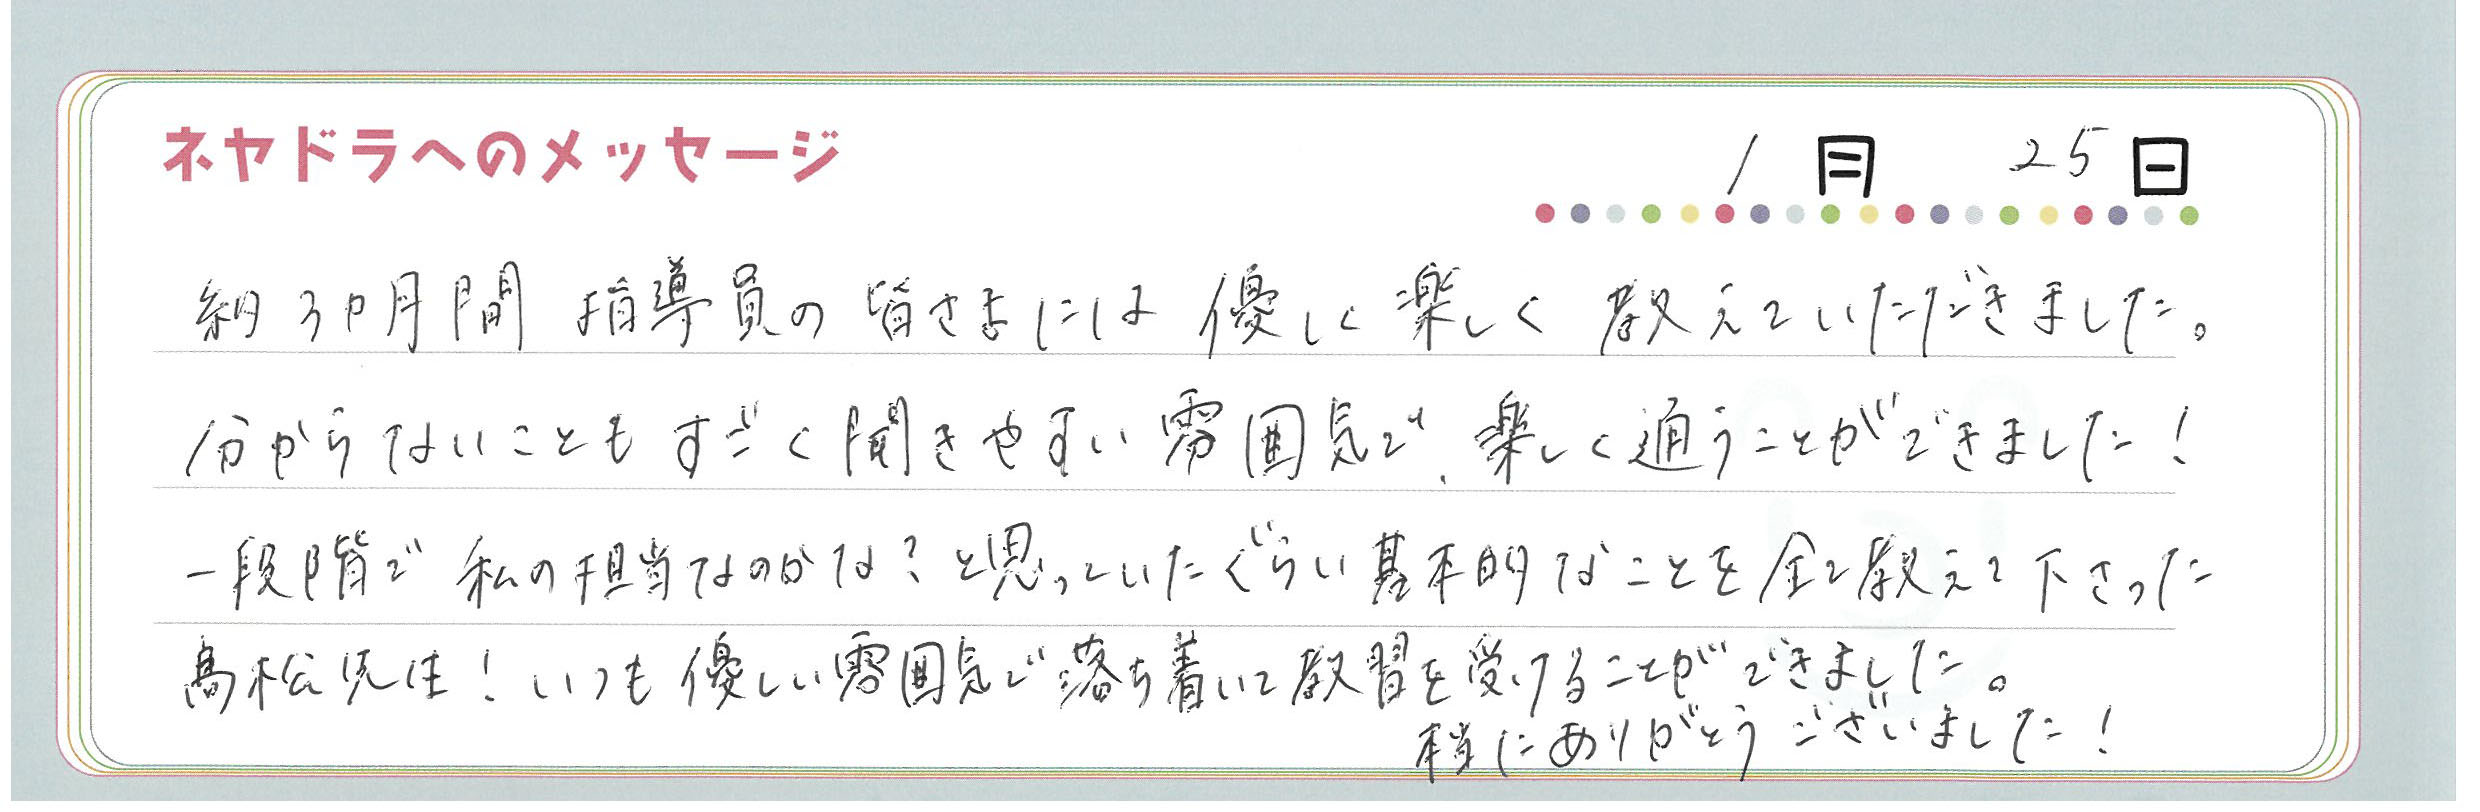 ネヤドラへのメッセージ
1月 25日
約3ヶ月間 指導員の皆さまには優しく楽しく教えていただきました。
分からないこともすごく聞きやすい雰囲気で、楽しく通うことができました!
一段階で私の担当なのかな?と思っていたぐらい基本的なことを全て教えて下さった
高松先生!いつも優しい雰囲気で落ち着いて教習を受けることができました。
本当にありがとうございました!